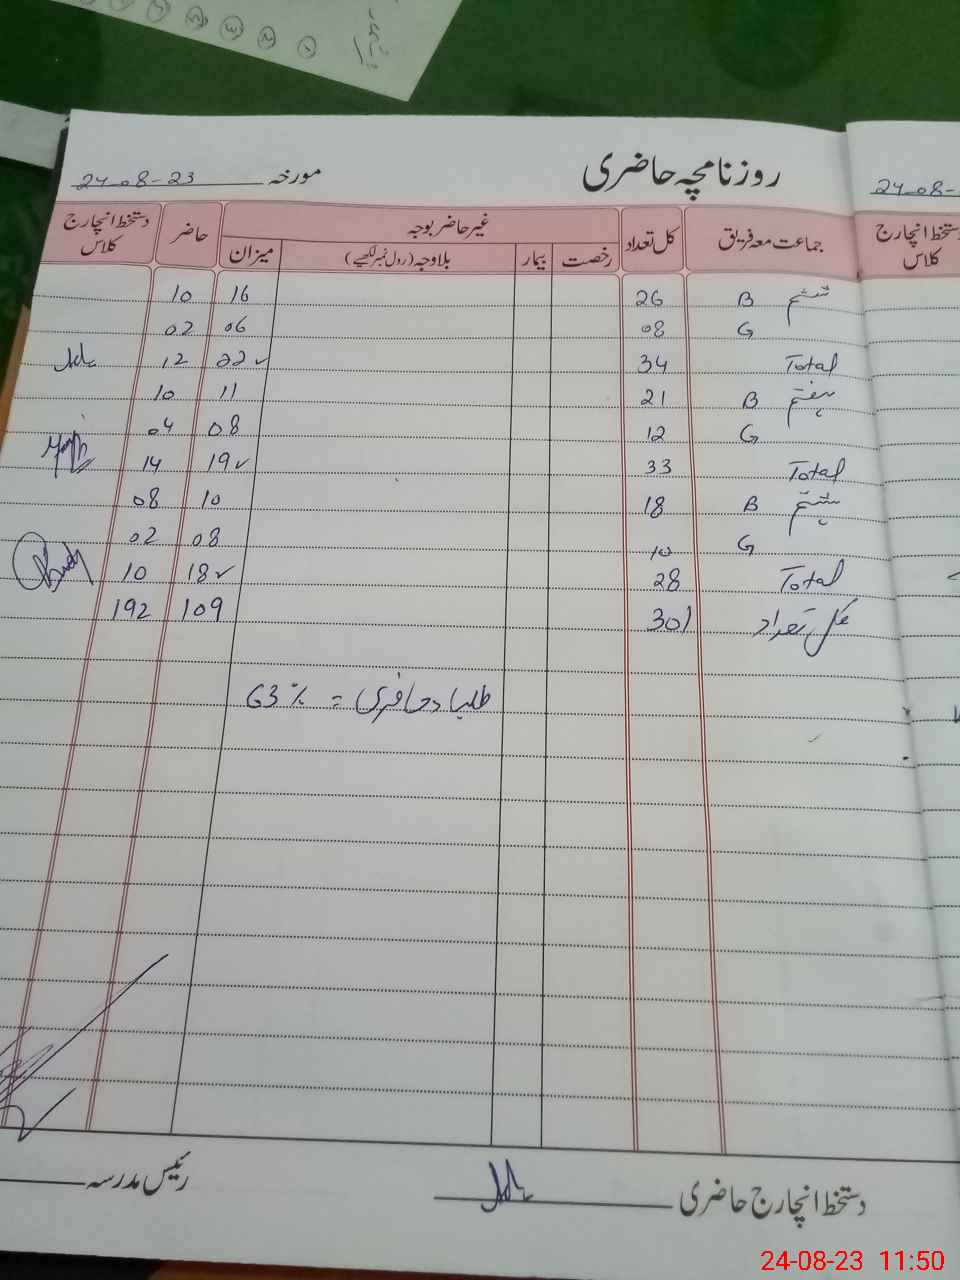 روزنامچہ حاضری مورخہ 24-08-23
24-08-
جماعت معہ فریق کل تعداد غیر حاضر بوجہ حاضر دستخط انچارج کلاس
رخصت بیمار بلاوجہ (رول نمبر لکھیے) میزان
دستخط انچارج کلاس
ششم B 26 16 10
G 08 06 02
Total 34 22 12
ہفتم B 21 11 10
G 12 08 04
Total 33 19 14
ہشتم B 18 10 08
G 10 08 02
Total 28 18 10
کل تعداد 301 109 192
طلباء حاضری = 63%
دستخط انچارج حاضری
رئیس مدرسہ
24-08-23 11:50